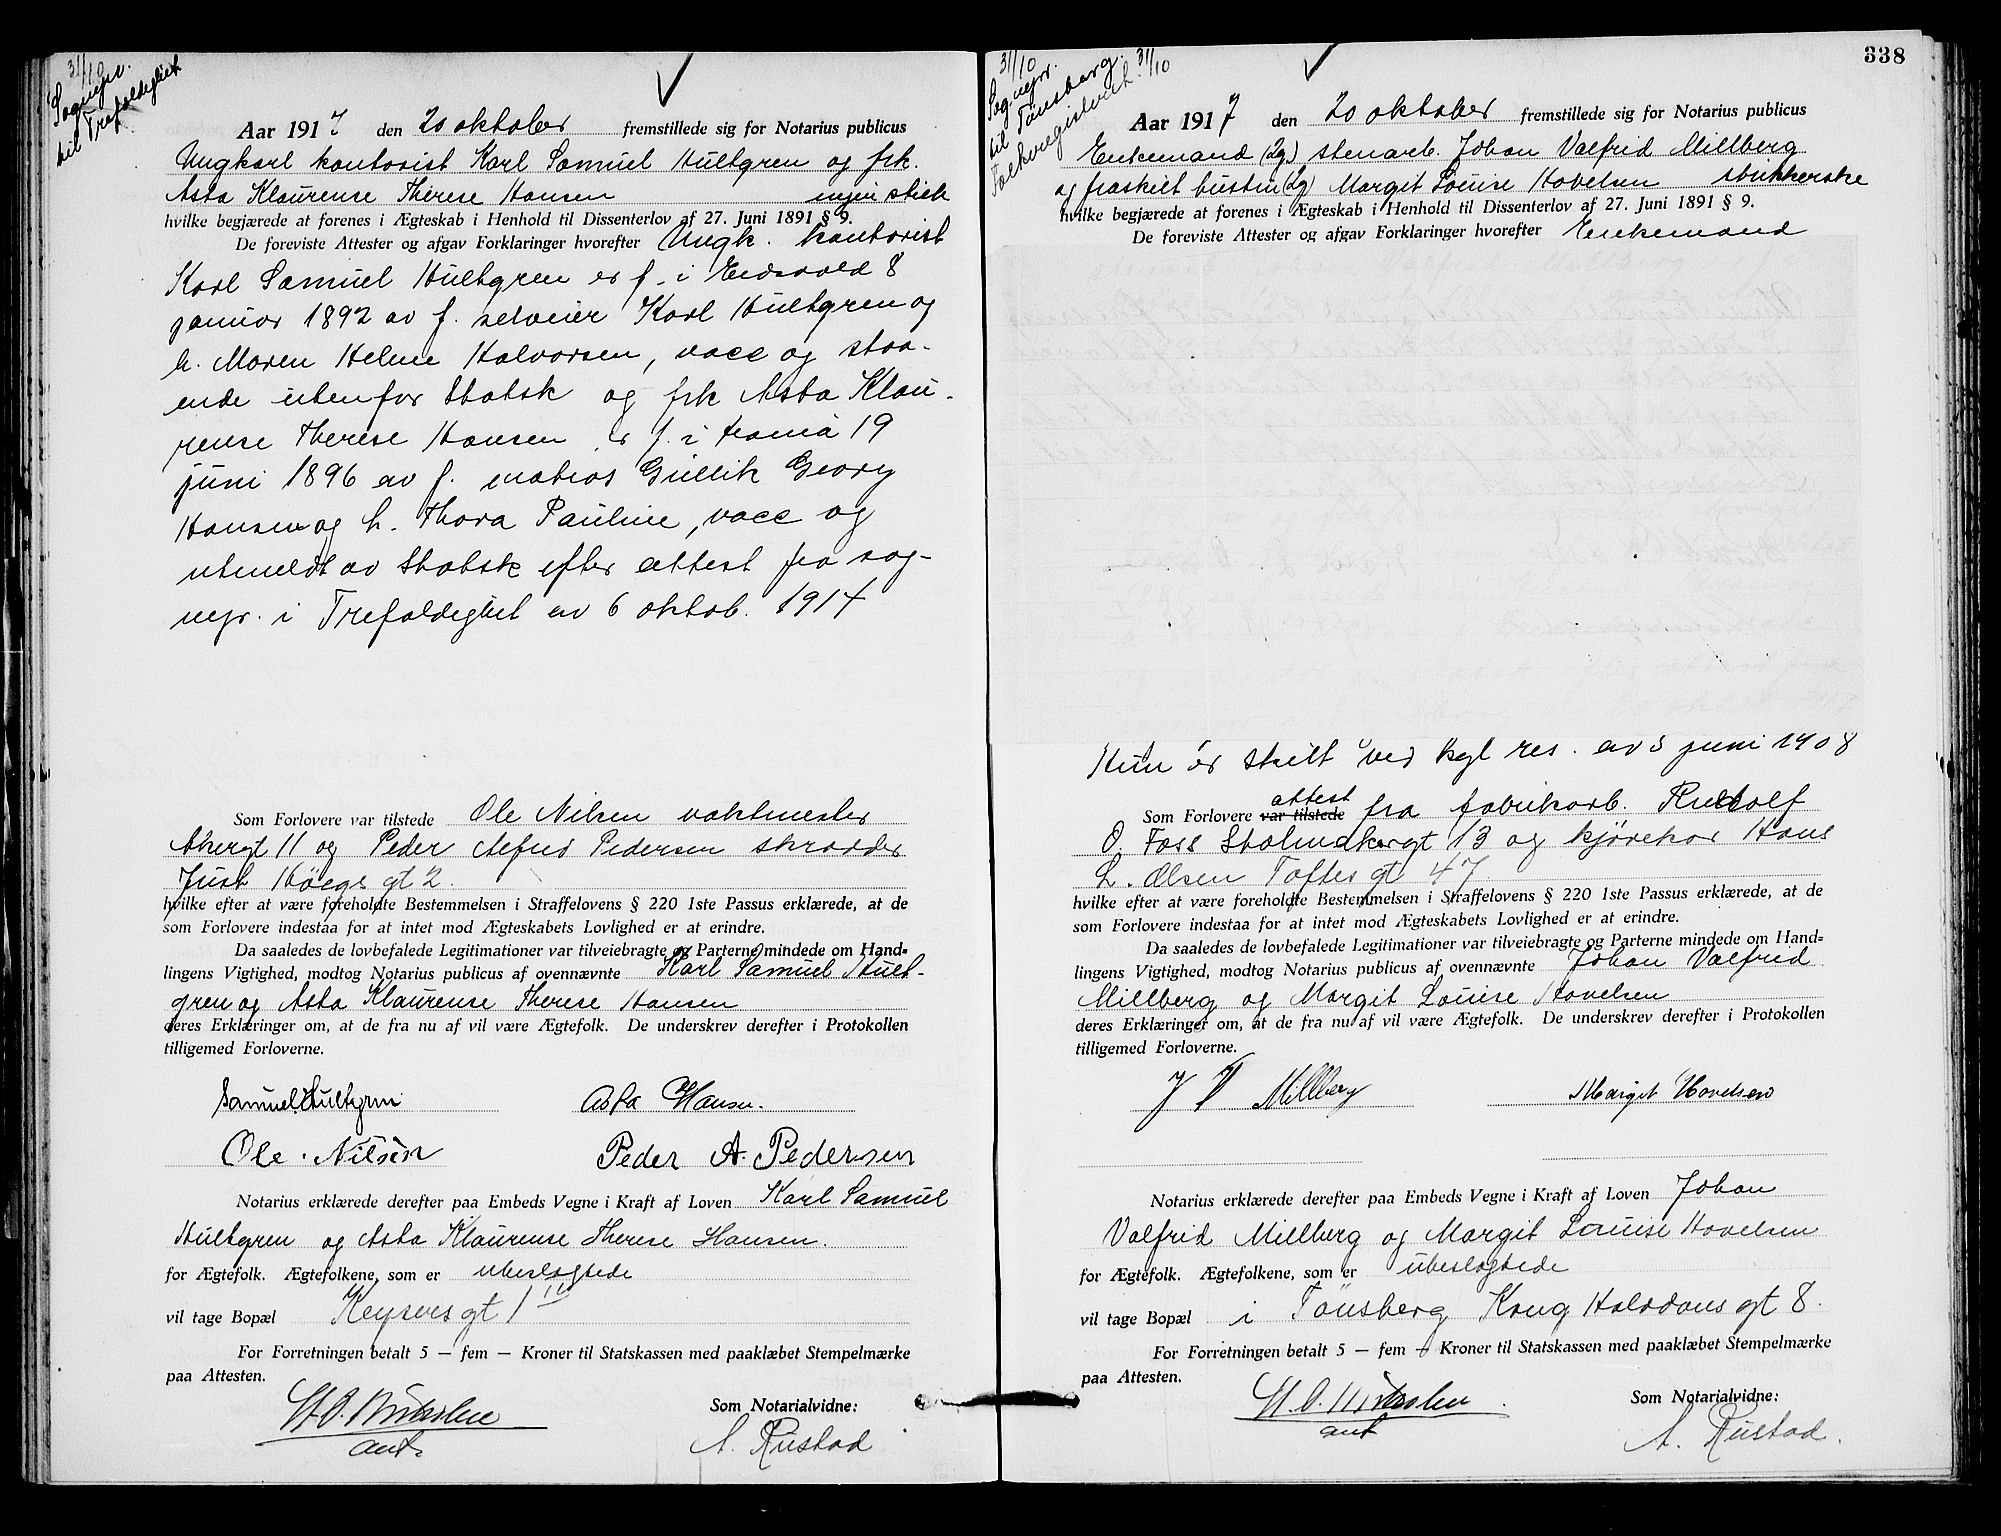 31/10
Sognepr.
til Trefoldighet
Aar 1917 den 20 oktober fremstillede sig for Notarius publicus
Ungkarl kontorist Karl Samuel Hultgren og frk.
Asta Klaurense Therese Hansen
hvilke begjærede at forenes i Ægteskab i Henhold til Dissenterlov af 27. Juni 1891 § 9.
De foreviste Attester og afgav Forklaringer hvorefter Ungk. kontorist
Karl Samuel Hultgren er f. i Eidsvold 8
januar 1892 av f. selveier Karl Hultgren og
h. Maren Helene Halvorsen, vacc og staa-
ende utenfor Statsk og frk Asta Klau-
rense Therese Hansen er f. i 19
juni 1896 av f. matros Gullik Georg
Hansen og h. Thora Pauline, vacc og
utmeldt av Statsk efter attest fra sog-
nepr. i Trefoldighet av 6 oktob. 1914
Som Forlovere var tilstede Ole Nilsen vaktmester
Akergt 11 og Peder Alfred Pedersen skrædder
Just Höegs gt 2.
hvilke efter at være foreholdte Bestemmelsen i Straffelovens § 220 1ste Passus erklærede, at de
som Forlovere indestaa for at intet mod Ægteskabets Lovlighed er at erindre.
Da saaledes de lovbefalede Legitimationer var tilveiebragte og Parterne mindede om Hand-
lingens Vigtighed, modtog Notarius publicus af ovennævnte Karl Samuel Hult-
gren og Asta Klaurense Therese Hansen
deres Erklæringer om, at de fra nu af vil være Ægtefolk. De underskrev derefter i Protokollen
tilligemed Forloverne.
Samuel Hultgren Asta Hansen.
Ole Nilsen Peder A. Pedersen
Notarius erklærede derefter paa Embeds Vegne i Kraft af Loven Karl Samuel
Hultgren og Asta Klaurense Therese Hansen.
for Ægtefolk. Ægtefolkene, som er ubeslegtede
vil tage Bopæl Keysers gt 1
For Forretningen betalt 5 — fem — Kroner til Statskassen med paaklæbet Stempelmærke
paa Attesten.
Som Notarialvidne:
aut.
A. Rustad
338
31/10
Sognepr.
til Tønsberg.
Folkeregistret 31/10
Aar 1917 den 20 oktober fremstillede sig for Notarius publicus
Enkemand (2g.) stenarb. Johan Valfrid Millberg
og fraskilt hustru (2g) Margit Louise Hovelsen
hvilke begjærede at forenes i Ægteskab i Henhold til Dissenterlov af 27. Juni 1891 § 9.
De foreviste Attester og afgav Forklaringer hvorefter Enkemand
Hun er skilt ved kgl res. av 5 juni 1908
Som Forlovere var tilstede attest fra fabrikarb. Rudolf
O. Foss Stolmakergt 13 og kjørekar Hans
L. Olsen Toftes gt 47
hvilke efter at være foreholdte Bestemmelsen i Straffelovens § 220 1ste Passus erklærede, at de
som Forlovere indestaa for at intet mod Ægteskabets Lovlighed er at erindre.
Da saaledes de lovbefalede Legitimationer var tilveiebragte og Parterne mindede om Hand-
lingens Vigtighed, modtog Notarius publicus af ovennævnte Johan Valfrid
Millberg og Margit Louise Hovelsen
deres Erklæringer om, at de fra nu af vil være Ægtefolk. De underskrev derefter i Protokollen
tilligemed Forloverne.
J V Millberg Margit Hovelsen
Notarius erklærede derefter paa Embeds Vegne i Kraft af Loven Johan
Valfrid Millberg og Margit Louise Hovelsen
for Ægtefolk. Ægtefolkene, som er ubeslegtede
vil tage Bopæl i Tönsberg Kong Haldans gt 8.
For Forretningen betalt 5 — fem — Kroner til Statskassen med paaklæbet Stempelmærke
paa Attesten.
Som Notarialvidne:
aut
A. Rustad.